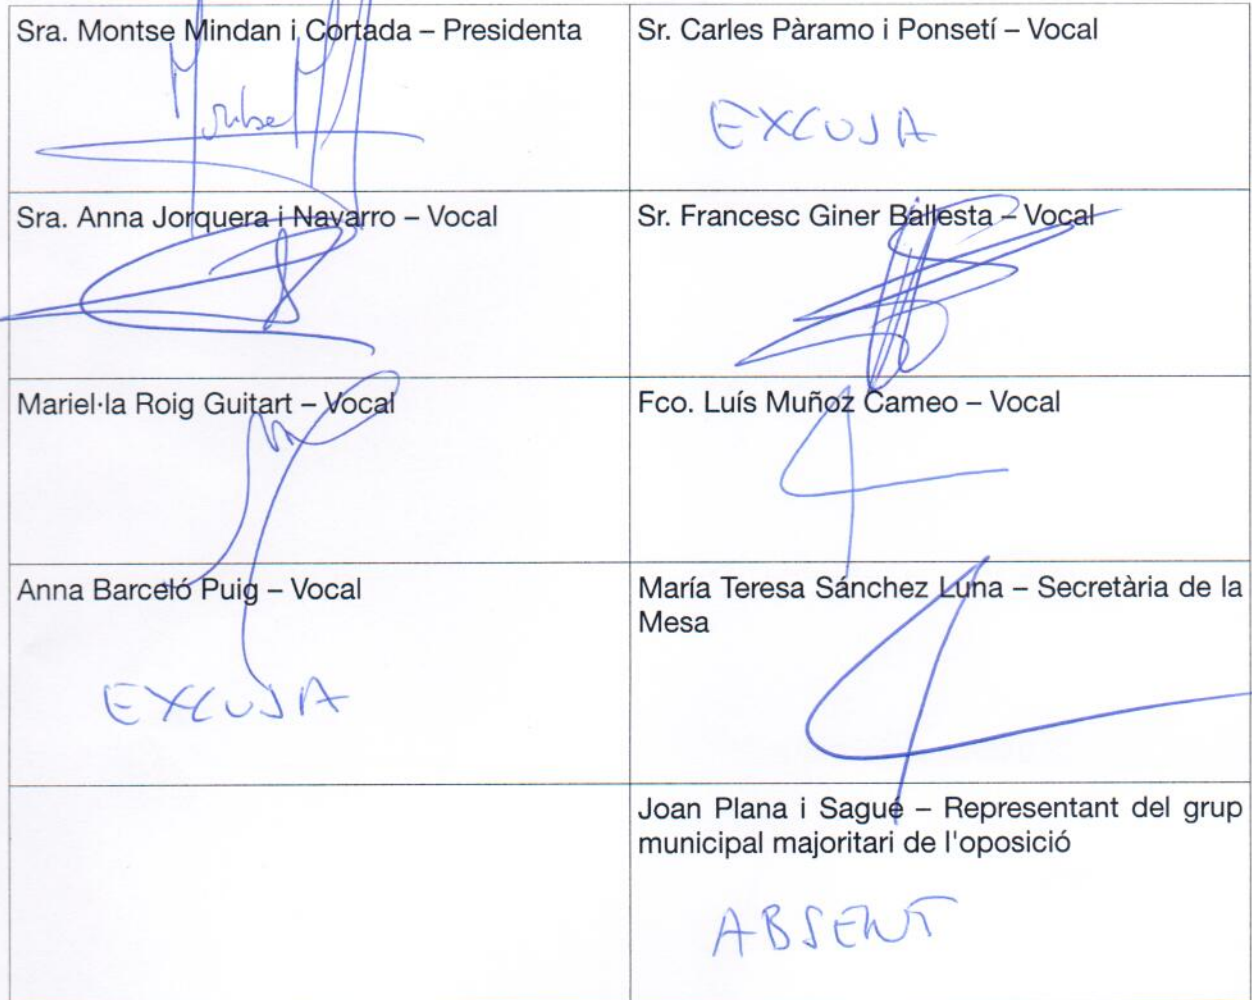 Sra. Montse Mindan i Cortada – Presidenta
Sr. Carles Pàramo i Ponsetí – Vocal
EXCUSA
Sra. Anna Jorquera i Navarro – Vocal
Sr. Francesc Giner Ballesta – Vocal
Mariel·la Roig Guitart – Vocal
Fco. Luís Muñoz Cameo – Vocal
Anna Barceló Puig – Vocal
EXCUSA
María Teresa Sánchez Luna – Secretària de la
Mesa
Joan Plana i Sagué – Representant del grup
municipal majoritari de l'oposició
ABSENT